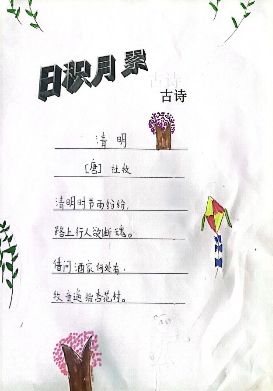 日积月累
古诗
清明
[唐] 杜牧
清明时节雨纷纷,
路上行人欲断魂。
借问酒家何处有,
牧童遥指杏花村。